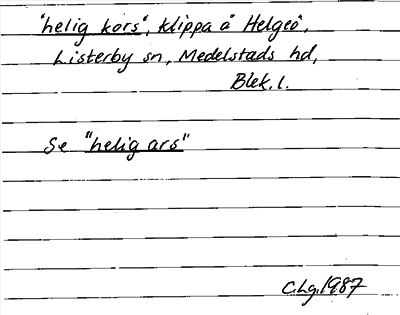 "helig kors", klippa å Helgeö,
Listerby sn, Medelstads hd,
Blek. l.
Se "helig ars"
C.Lg.1987